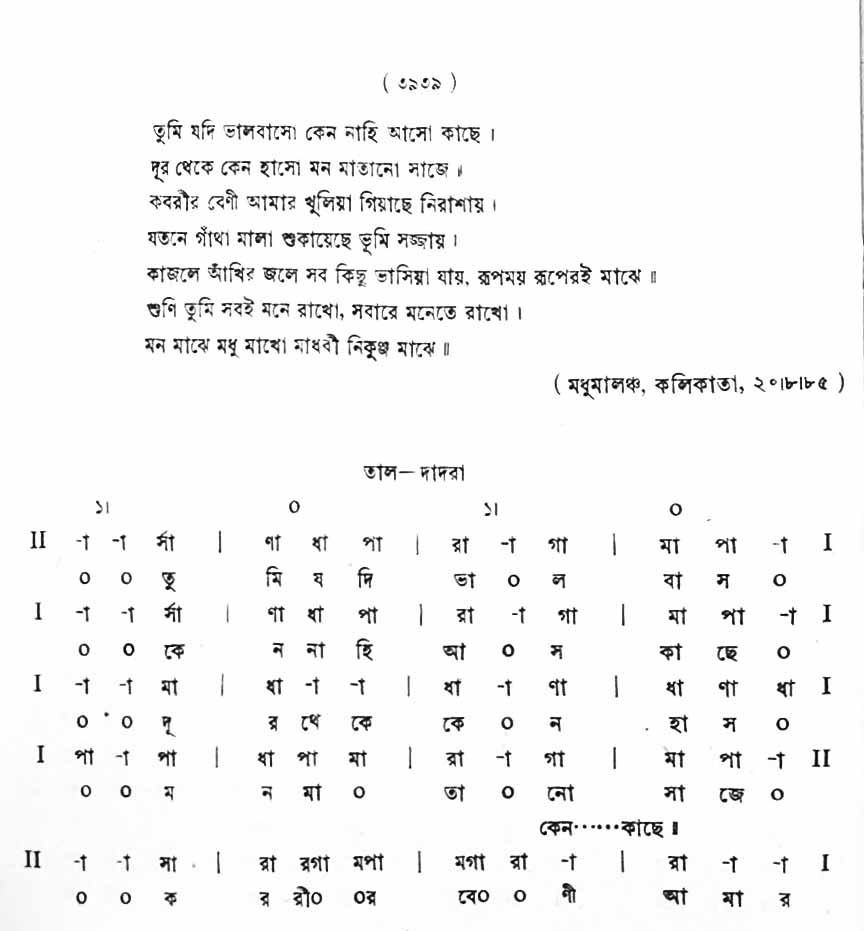 ( ৩৯৩৯ )
তুমি যদি ভালবাসো কেন নাহি আসো কাছে ।
দূর থেকে কেন হাসো মন মাতানো সাজে ॥
কবরীর বেণী আমার খুলিয়া গিয়াছে নিরাশায় ।
যতনে গাঁথা মালা শুকায়েছে ভূমি সজ্জায় ।
কাজলে আঁখির জলে সব কিছু ভাসিয়া যায়, রূপময় রূপেরই মাঝে ॥
শুণি তুমি সবই মনে রাখো, সবারে মনেতে রাখো ।
মন মাঝে মধু মাখো মাধবী নিকুঞ্জ মাঝে ॥
( মধুমালঞ্চ, কলিকাতা, ২০।৮।৮৫ )
তাল—দাদরা
১। ০ ১। ০
II -া -া র্সা | ণা ধা পা | রা -া গা | মা পা -া I
০ ০ তু মি য দি ভা ০ ল বা স ০
I -া -া র্সা | ণা ধা পা | রা -া গা | মা পা -া I
০ ০ কে ন না হি আ ০ স কা ছে ০
I -া -া মা | ধা -া -া | ধা -া ণা | ধা ণা ধা I
০ ০ দূ র থে কে কে ০ ন হা স ০
I পা -া পা | ধা পা মা | রা -া গা | মা পা -া II
০ ০ ম ন মা ০ তা ০ নো সা জে ০
কেন······কাছে ॥
II -া -া সা | রা রগা মপা | মগা রা -া | রা -া -া I
০ ০ ক ব রী০ ০র বে০ ০ ণী আ মা র